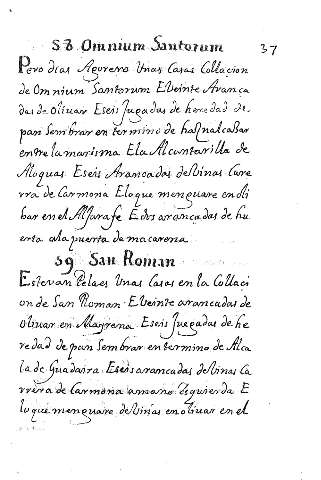 58 Omnium Santorum 37
Pero dias Agorero Unas Casas Collacion
de Omnium Santorum E Veinte Aranca
das de Olivar E seis Jugadas de heredad de
pan sembrar en termino de haznalcaBar
entre la marisma E la Alcantarilla de
Aloquas E seis Arancadas de Vinas Carre
rra de Carmona E lo que menguare en oli
bar en el Alfarafe E dos arancadas de hu
erta a la puerta de macarena
59 San Roman
Estevan Pelaes Unas Casas en la Collaci
on de San Roman E Veinte arancadas de
olivar en Mayrena E seis Juegadas de he
redad de pan sembrar en termino de Alca
la de Guadaira E seis arancadas de Vinas Ca
rrera de Carmona a mano Izquierda E
lo que menguare de Vinas en olivar en el